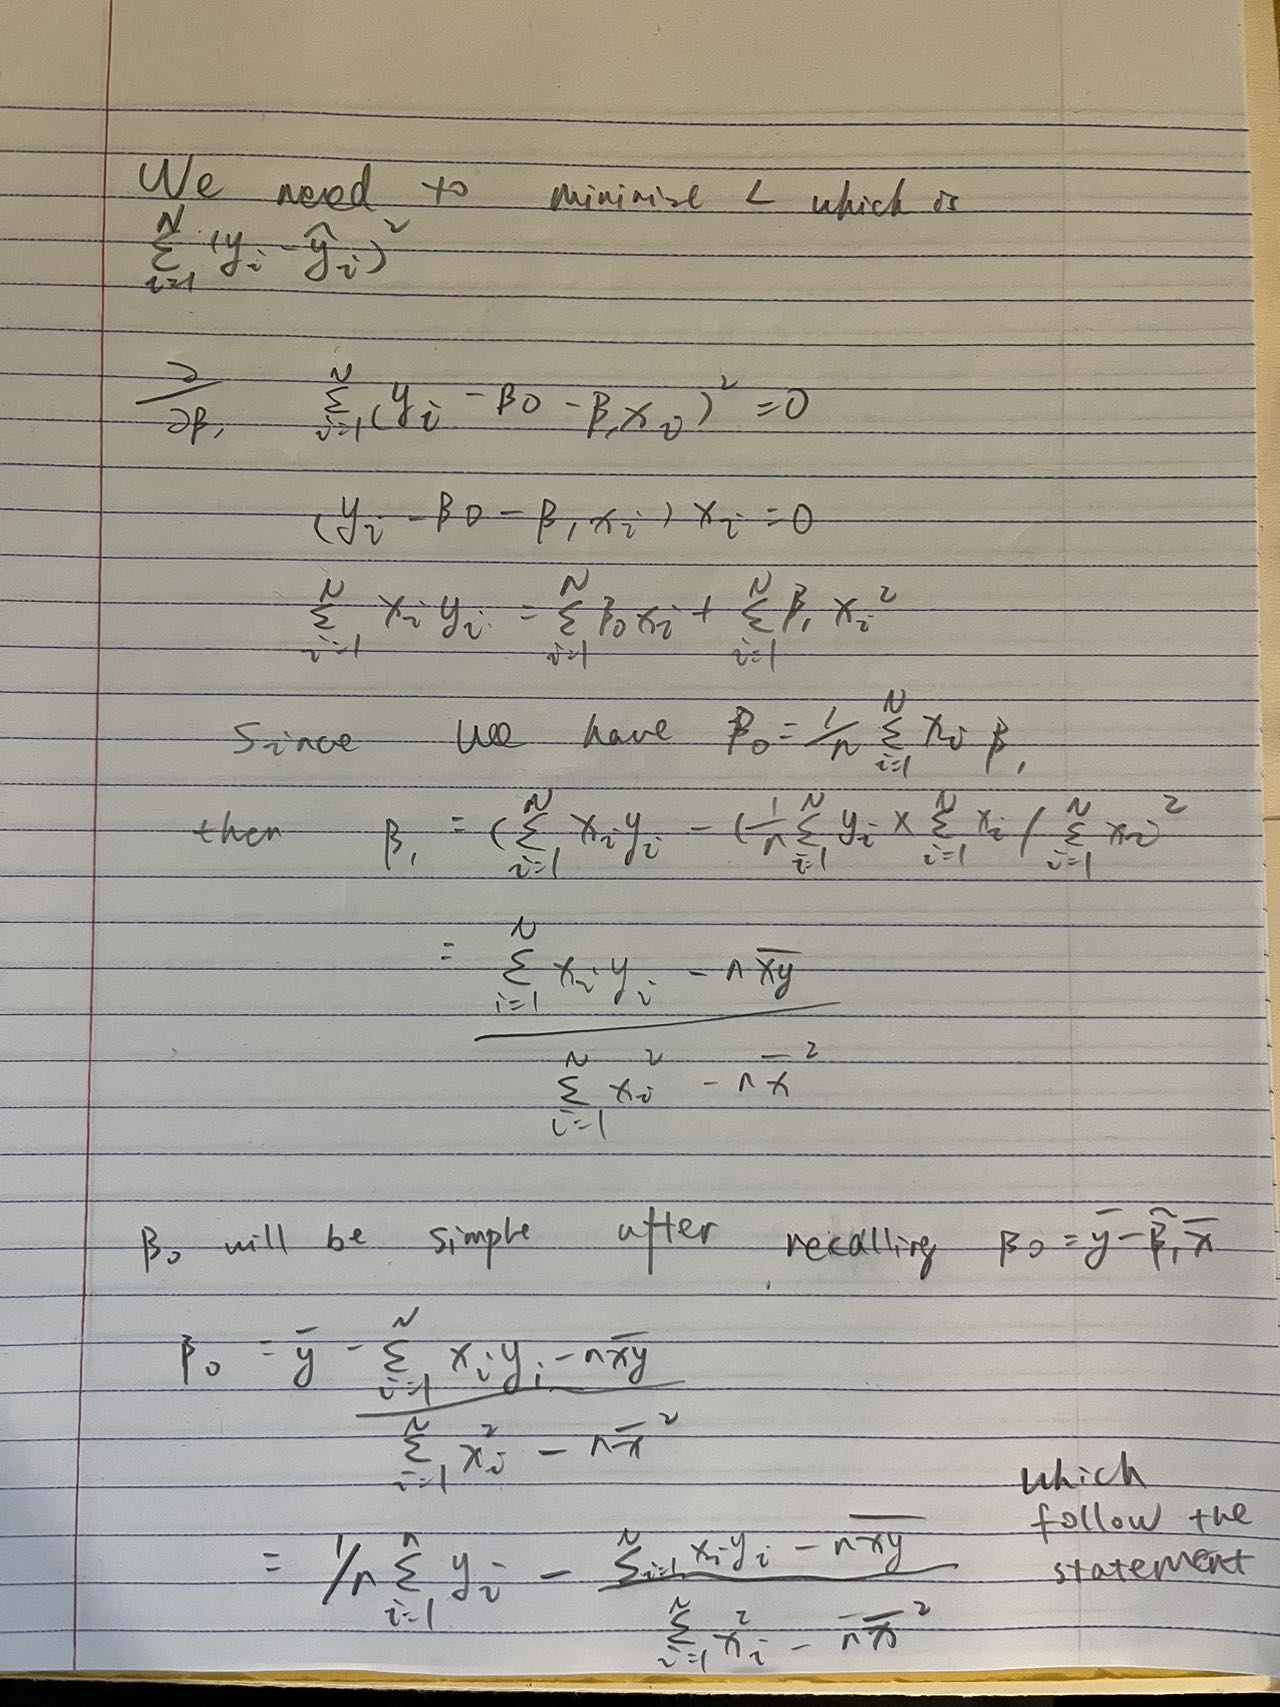 We need to minimise L which is
∑_{i=1}^{N} (y_i - ŷ_i)²
∂/∂β₁ ∑_{i=1}^{N} (y_i - β0 - β₁x_i)² = 0
(y_i - β0 - β₁x_i) x_i = 0
∑_{i=1}^{N} x_i y_i = ∑_{i=1}^{N} β₀x_i + ∑_{i=1}^{N} β₁ x_i²
Since we have β₀ = 1/n ∑_{i=1}^{N} x_i β₁
then β₁ = (∑_{i=1}^{N} x_i y_i - (1/n ∑_{i=1}^{N} y_i × ∑_{i=1}^{N} x_i / ∑_{i=1}^{N} x_i)²
= (∑_{i=1}^{N} x_i y_i - n \overline{xy}) / (∑_{i=1}^{N} x_i² - n x̄²)
β₀ will be simple after recalling β₀ = ȳ - β̂₁x̄
β₀ = ȳ - (∑_{i=1}^{N} x_i y_i - n \overline{xy}) / (∑_{i=1}^{N} x_i² - n x̄²)
= 1/n ∑_{i=1}^{n} y_i - (∑_{i=1}^{N} x_i y_i - n \overline{xy}) / (∑_{i=1}^{N} x_i² - n x̄²)
which
follow the
statement